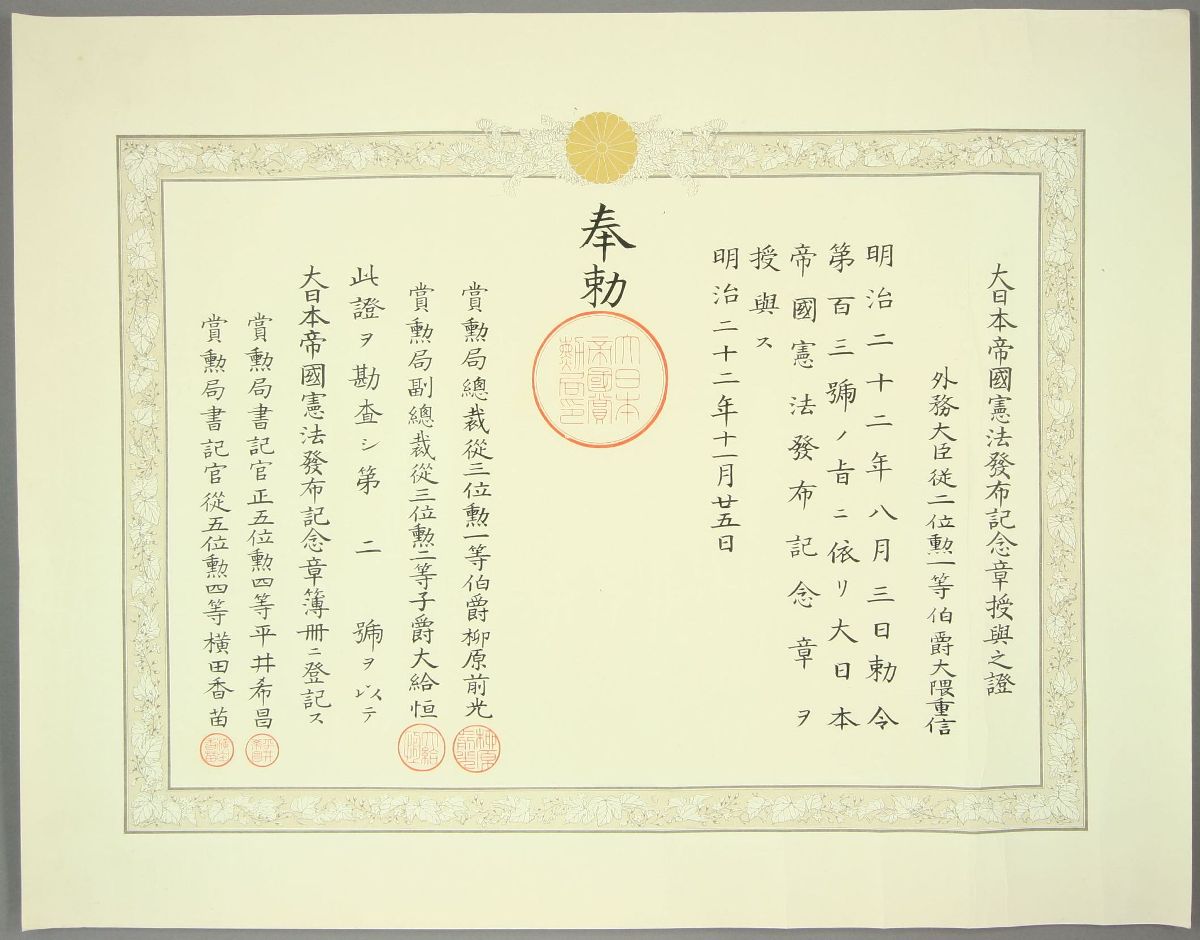 大日本帝國憲法發布記念章授與之證
外務大臣從二位勲一等伯爵大隈重信
明治二十二年八月三日勅令
第百三號ノ旨ニ依リ大日本
帝國憲法發布記念章ヲ
授與ス
明治二十二年十一月廿五日
奉勅
大日本
帝國賞
勲局印
賞勲局總裁從三位勲一等伯爵柳原前光
賞勲局副總裁從三位勲二等子爵大給恒
此證ヲ勘査シ第二號ヲ以テ
大日本帝國憲法發布記念章簿册ニ登記ス
賞勲局書記官正五位勲四等平井希昌
賞勲局書記官從五位勲四等横田香苗